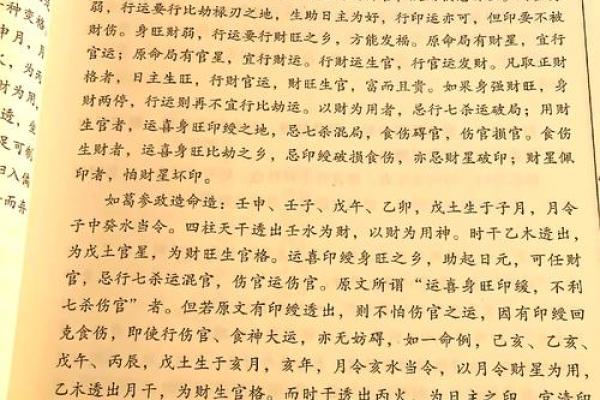 弱，行运要行比劫禄刃之地，生助日主为好，行印运亦可，但印要不被
财伤。身旺财弱，行运要行财旺之乡，方能发福。原命局有财星，宜行
官运；原命局有官星，宜行财运。行财运生官，行官运发财。凡取正财
格者，日主生旺，行财官运，财旺生官，富而且贵。如果身强财旺，身
财两停，行运则再不宜行比劫运。以财为用者，忌行七杀运破局；用财
生官者，运喜身旺印绶之地，忌七杀混局，食伤碍官，伤官损官。食伤
生财者，运喜身旺比劫之乡，忌印绶破损食伤，亦忌财星破印；财星佩
印者，怕财星坏印。
如葛参政造命造：壬申、壬子、戊午、乙卯，戊土生于子月，月令
子中癸水当令。四柱天干透出壬水为财，以财为用神。时干乙木透出，
为戊土官星，为财旺生官格。运喜印绶身旺之乡，助起日元，可任财
官，忌行七杀运混官，伤官运伤官。原文所谓“运喜身旺印绶，不利
七杀伤官”者。但若原文有印绶透出，则不怕伤官之运，因有印绶回
克食伤，即使行伤官、食神大运，亦无妨碍。如一命例，己亥、乙亥、
戊午、丙辰，戊土生于亥月，亥年，月令亥水当令，以月令财星为用，
乙木透出月干，为财生官格。而时干透出丙火，为日主之印，官清印
种变格。
中月，月
，为
财为用，
透，生
足可制
归入
弃